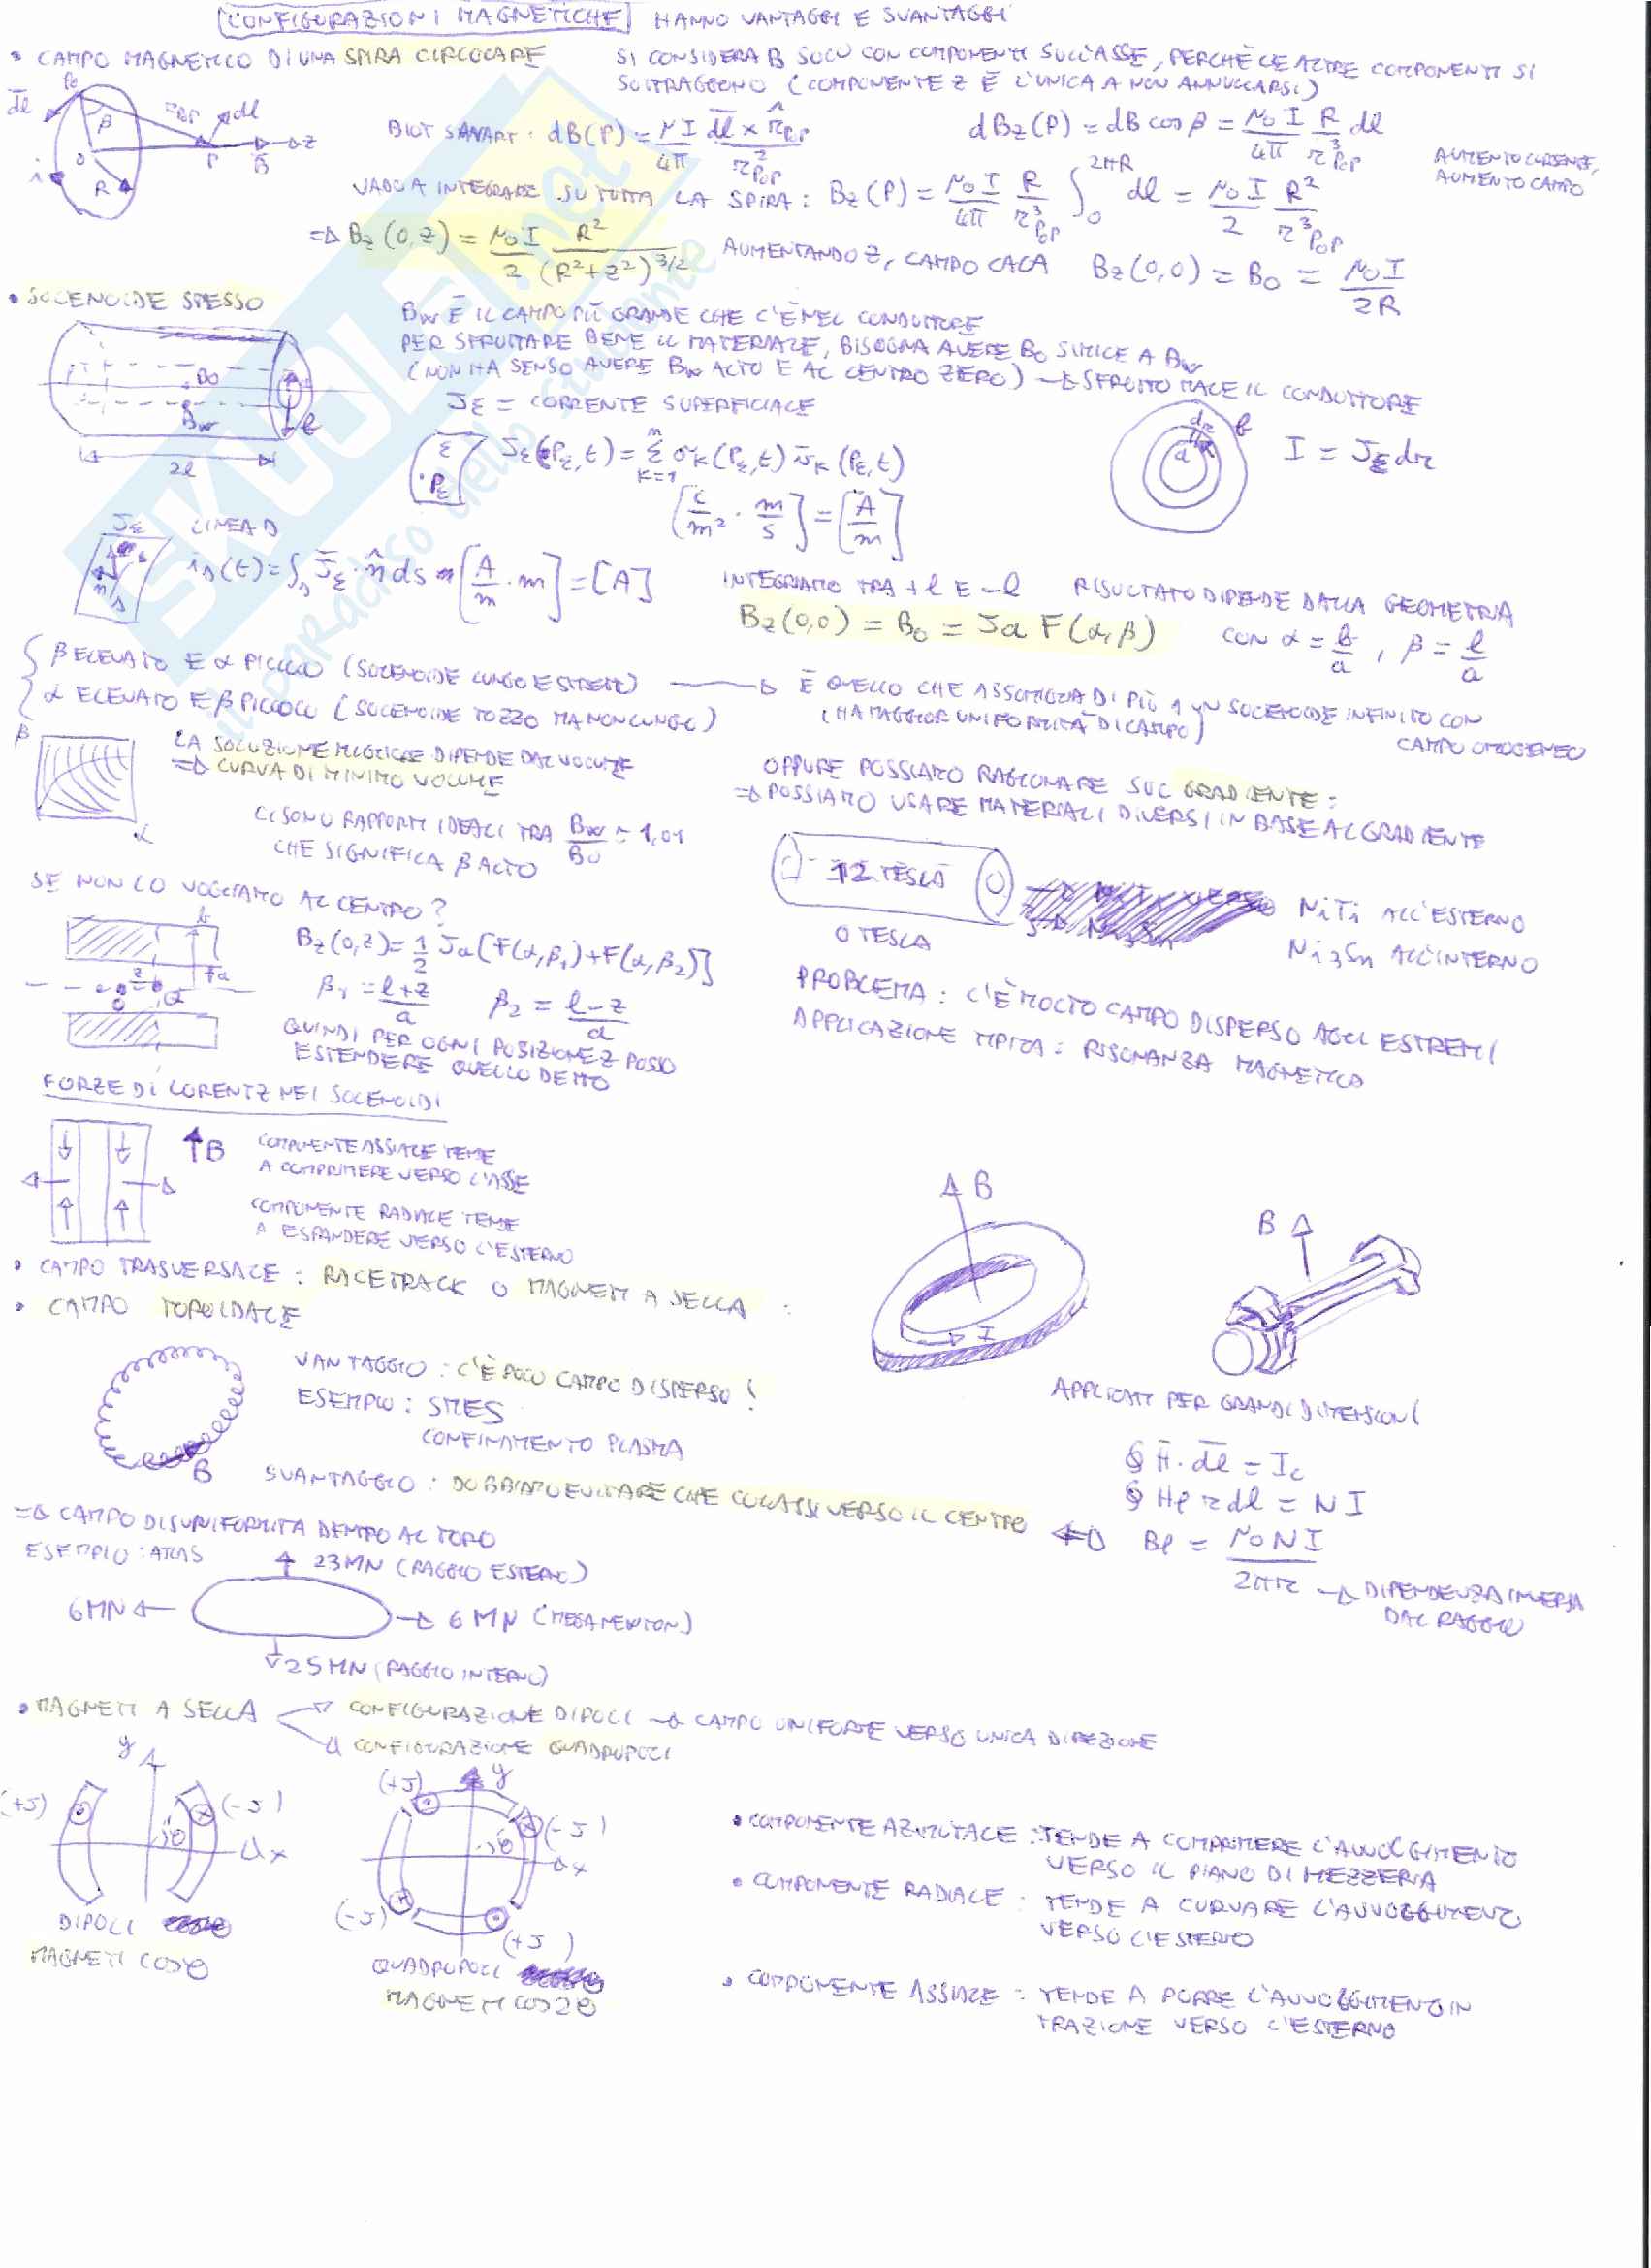 CONFIGURAZIONI MAGNETICHE HANNO VANTAGGI E SVANTAGGI
• CAMPO MAGNETICO DI UNA SPIRA CIRCOLARE
SI CONSIDERA B SOLO CON COMPONENTI SULL'ASSE, PERCHÈ LE ALTRE COMPONENTI SI
SOTTRAGGONO (COMPONENTE Z È L'UNICA A NON ANNULLARSI)
BIOT SAVART: dB(P) = μI/4π dl × r̂P₀P / r²P₀P
dBz(P) = dB cos β = μ₀I/4π R/r³P₀P dl
AUMENTO CORRENTE,
AUMENTO CAMPO
VADO A INTEGRARE SU TUTTA LA SPIRA: Bz(P) = μ₀I/4π R/r³P₀P ∫₀^2πR dl = μ₀I/2 R²/r³P₀P
⇒ Bz(0,z) = μ₀I/2 R²/(R²+z²)^3/2 AUMENTANDO Z, CAMPO CALA Bz(0,0) = B₀ = μ₀I/2R
• SOLENOIDE SPESSO
Bw È IL CAMPO PIÙ GRANDE CHE C'È NEL CONDUTTORE
PER SFRUTTARE BENE IL MATERIALE, BISOGNA AVERE B₀ SIMILE A Bw
(NON HA SENSO AVERE Bw ALTO E AL CENTRO ZERO) → SFRUTTO MALE IL CONDUTTORE
B₀
Bw
2l
JΣ = CORRENTE SUPERFICIALE
JΣ(PΣ,t) = Σ k=1 n σk(PΣ,t) v̄k(PΣ,t)
[C/m² · m/s] = [A/m]
I = JΣ dr
JΣ LINEA
is(t) = ∫s J̄Σ · n̂ ds = [A/m · m] = [A]
INTEGRIAMO TRA +l E -l RISULTATO DIPENDE DALLA GEOMETRIA
Bz(0,0) = B₀ = Ja F(α,β) CON α = b/a, β = l/a
β ELEVATO E α PICCOLO (SOLENOIDE LUNGO E STRETTO) → È QUELLO CHE ASSOMIGLIA DI PIÙ A UN SOLENOIDE INFINITO CON
CAMPO OMOGENEO
(HA MAGGIOR UNIFORMITÀ DI CAMPO)
α ELEVATO E β PICCOLO (SOLENOIDE TOZZO MA NON LUNGO)
β
α
LA SOLUZIONE MIGLIORE DIPENDE DAL VOLUME
⇒ CURVA DI MINIMO VOLUME
CI SONO RAPPORTI IDEALI TRA Bw/B₀ ≈ 1,01
CHE SIGNIFICA β ALTO
OPPURE POSSIAMO RAGIONARE SUL GRADIENTE:
⇒ POSSIAMO USARE MATERIALI DIVERSI IN BASE AL GRADIENTE
12 TESLA
0 TESLA
NiTi ALL'ESTERNO
Ni3Sn ALL'INTERNO
SE NON LO VOGLIAMO AL CENTRO?
Bz(0,z) = 1/2 Ja[F(α,β₁)+F(α,β₂)]
β₁ = l+z/a β₂ = l-z/a
QUINDI PER OGNI POSIZIONE Z POSSO
ESTENDERE QUELLO DETTO
PROBLEMA: C'È MOLTO CAMPO DISPERSO AGLI ESTREMI
APPLICAZIONE TIPICA: RISONANZA MAGNETICA
FORZE DI LORENTZ NEI SOLENOIDI
B
COMPONENTE ASSIALE TENDE
A COMPRIMERE VERSO L'ASSE
COMPONENTE RADIALE TENDE
A ESPANDERE VERSO L'ESTERNO
• CAMPO TRASVERSALE: RACETRACK O MAGNETI A SELLA:
B
I
B
APPLICATI PER GRANDI DIMENSIONI
• CAMPO TOROIDALE
B
VANTAGGIO: C'È POCO CAMPO DISPERSO!
ESEMPIO: SMES
CONFINAMENTO PLASMA
SVANTAGGIO: DOBBIAMO EVITARE CHE COLLASSI VERSO IL CENTRO
∮ H̄ · dl = Ic
∮ Hφ r dl = NI
Bφ = μ₀NI/2πr → DIPENDENZA INVERSA
DAL RAGGIO
⇒ CAMPO DISUNIFORMITÀ DENTRO AL TORO
ESEMPIO: ATLAS
23MN (RAGGIO ESTERNO)
6MN
6 MN (MEGANEWTON)
25MN (RAGGIO INTERNO)
• MAGNETI A SELLA
CONFIGURAZIONE DIPOLI → CAMPO UNIFORME VERSO UNICA DIREZIONE
CONFIGURAZIONE QUADRUPOLI
y
(+J)
(-J)
θ
x
DIPOLI
MAGNETI COSθ
(+J)
y
(-J)
θ
x
(-J)
(+J)
QUADRUPOLI
MAGNETI COS2θ
• COMPONENTE AZIMUTALE: TENDE A COMPRIMERE L'AVVOLGIMENTO
VERSO IL PIANO DI MEZZERIA
• COMPONENTE RADIALE: TENDE A CURVARE L'AVVOLGIMENTO
VERSO L'ESTERNO
• COMPONENTE ASSIALE: TENDE A PORRE L'AVVOLGIMENTO IN
TRAZIONE VERSO L'ESTERNO
SKUOLA.net
il paradiso dello studente